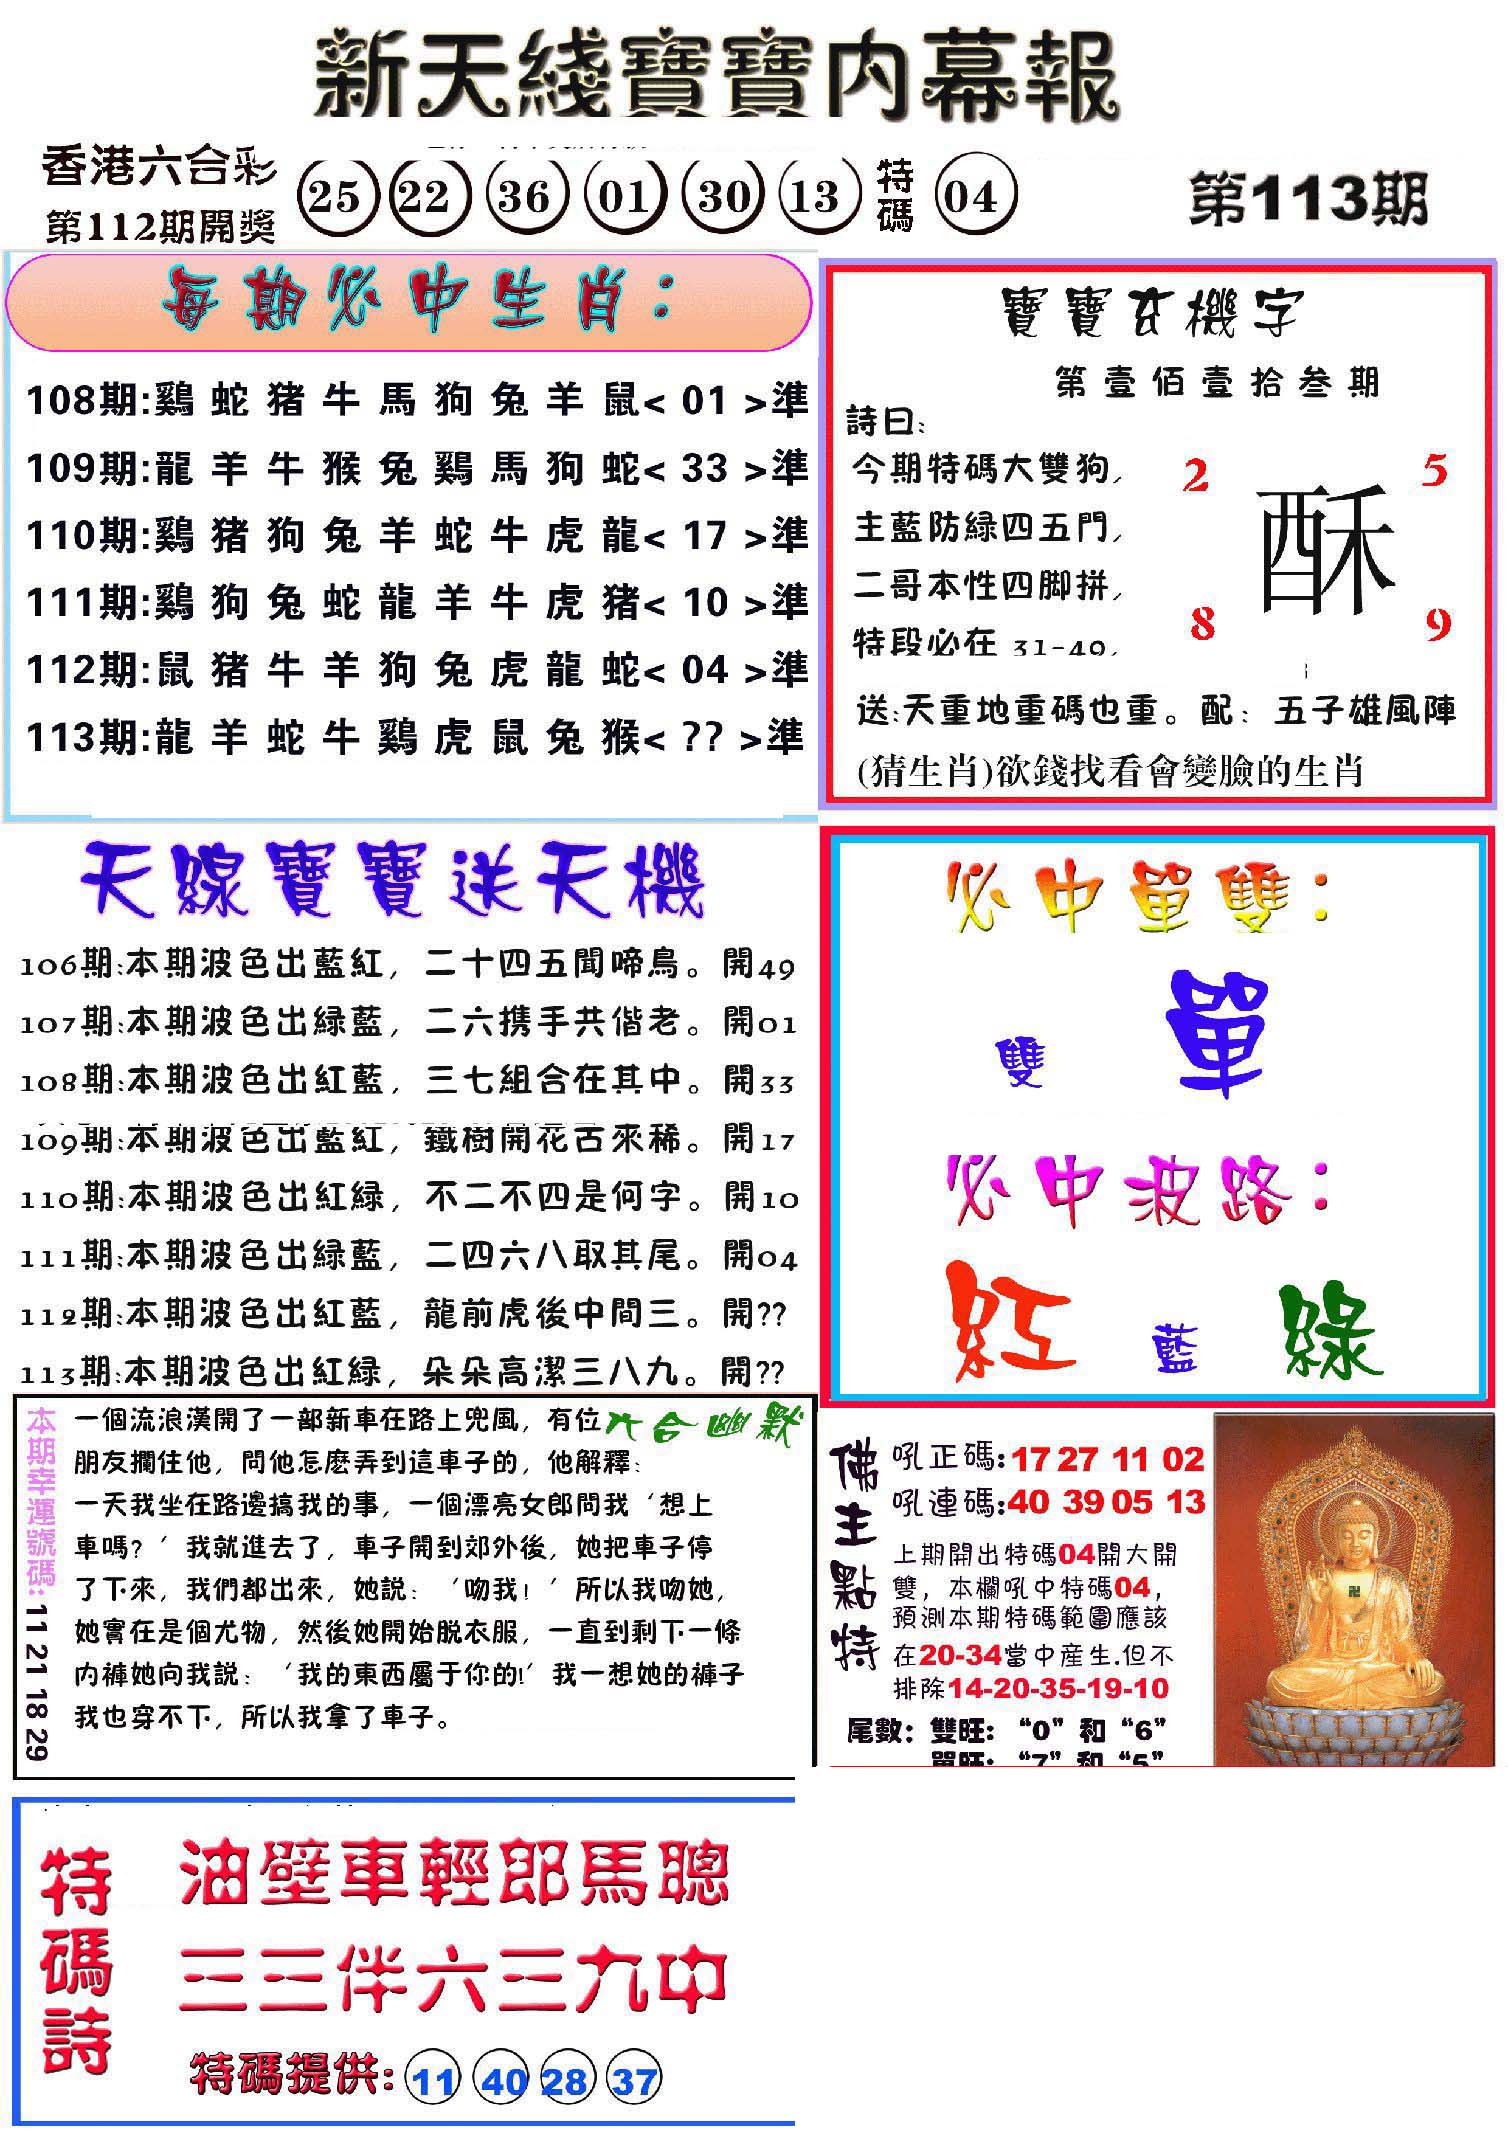 新天綫寶寶内幕報
香港六合彩
第112期開獎
25 22 36 01 30 13 特碼 04
第113期
每期必中生肖：
108期:鷄 蛇 猪 牛 馬 狗 兔 羊 鼠< 01 >準
109期:龍 羊 牛 猴 兔 鷄 馬 狗 蛇< 33 >準
110期:鷄 猪 狗 兔 羊 蛇 牛 虎 龍< 17 >準
111期:鷄 狗 兔 蛇 龍 羊 牛 虎 猪< 10 >準
112期:鼠 猪 牛 羊 狗 兔 虎 龍 蛇< 04 >準
113期:龍 羊 蛇 牛 鷄 虎 鼠 兔 猴< ?? >準
寶寶玄機字
第壹佰壹拾叁期
詩曰:
今期特碼大雙狗,
主藍防緑四五門,
二哥本性四脚拼,
特段必在 31-40,
2 5
酥
8 9
送:天重地重碼也重。配: 五子雄風陣
(猜生肖)欲錢找看會變臉的生肖
天線寶寶送天機
106期:本期波色出藍紅, 二十四五聞啼鳥。開49
107期:本期波色出緑藍, 二六携手共偕老。開01
108期:本期波色出紅藍, 三七組合在其中。開33
109期:本期波色出藍紅, 鐵樹開花古來稀。開17
110期:本期波色出紅緑, 不二不四是何字。開10
111期:本期波色出緑藍, 二四六八取其尾。開04
112期:本期波色出紅藍, 龍前虎後中間三。開??
113期:本期波色出紅緑, 朵朵高潔三八九。開??
必中單雙：
雙 單
必中波路：
紅 藍 綠
本期幸運號碼:11 21 18 29
六合幽默
一個流浪漢開了一部新車在路上兜風, 有位
朋友攔住他, 問他怎麽弄到這車子的, 他解釋:
一天我坐在路邊搞我的事, 一個漂亮女郎問我‘想上
車嗎?’我就進去了, 車子開到郊外後, 她把車子停
了下來, 我們都出來, 她説: ‘吻我!’所以我吻她,
她實在是個尤物, 然後她開始脱衣服, 一直到剩下一條
内褲她向我説: ‘我的東西屬于你的!’我一想她的褲子
我也穿不下, 所以我拿了車子。
佛主點特
吼正碼:17 27 11 02
吼連碼:40 39 05 13
上期開出特碼04開大開
雙, 本欄吼中特碼04,
預測本期特碼範圍應該
在20-34當中産生.但不
排除14-20-35-19-10
尾數: 雙旺: “0”和“6”
單旺: “7”和“5”
特碼詩
油壁車輕郎馬聰
三三伴六三九中
特碼提供: 11 40 28 37